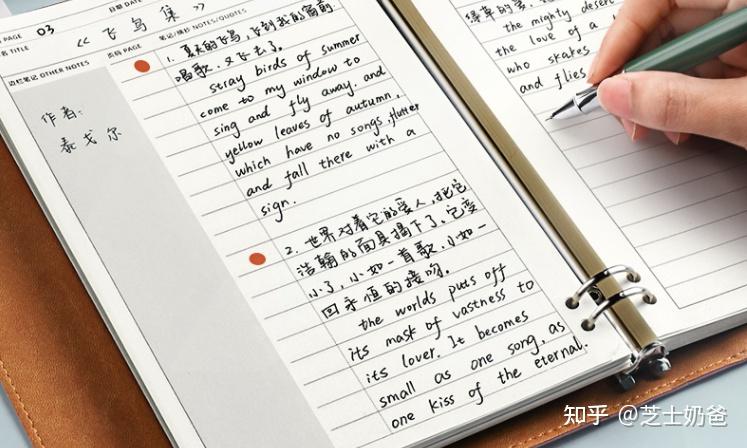 PAGE 03
日期 DATE
TITLE
《飞鸟集》
边栏笔记 OTHER NOTES
页码 PAGE
笔记/摘抄 NOTES/QUOTES
作者:
泰戈尔
1. 夏天的飞鸟,飞到我的窗前
唱歌,又飞去了。
stray birds of summer
come to my window to
sing and fly away. and
yellow leaves of autumn,
which have no songs, flutter
and fall there with a
sign.
2. 世界对着它的爱人,把它
浩瀚的面具揭下了。它变
小了,小如一首歌,小如一
回永恒的接吻。
the worlds puts off
its mask of vastness to
its lover. It becomes
small as one song, as
one kiss of the eternal.
the mighty desert
the love of a
who shakes
and flies
知乎 @芝士奶爸